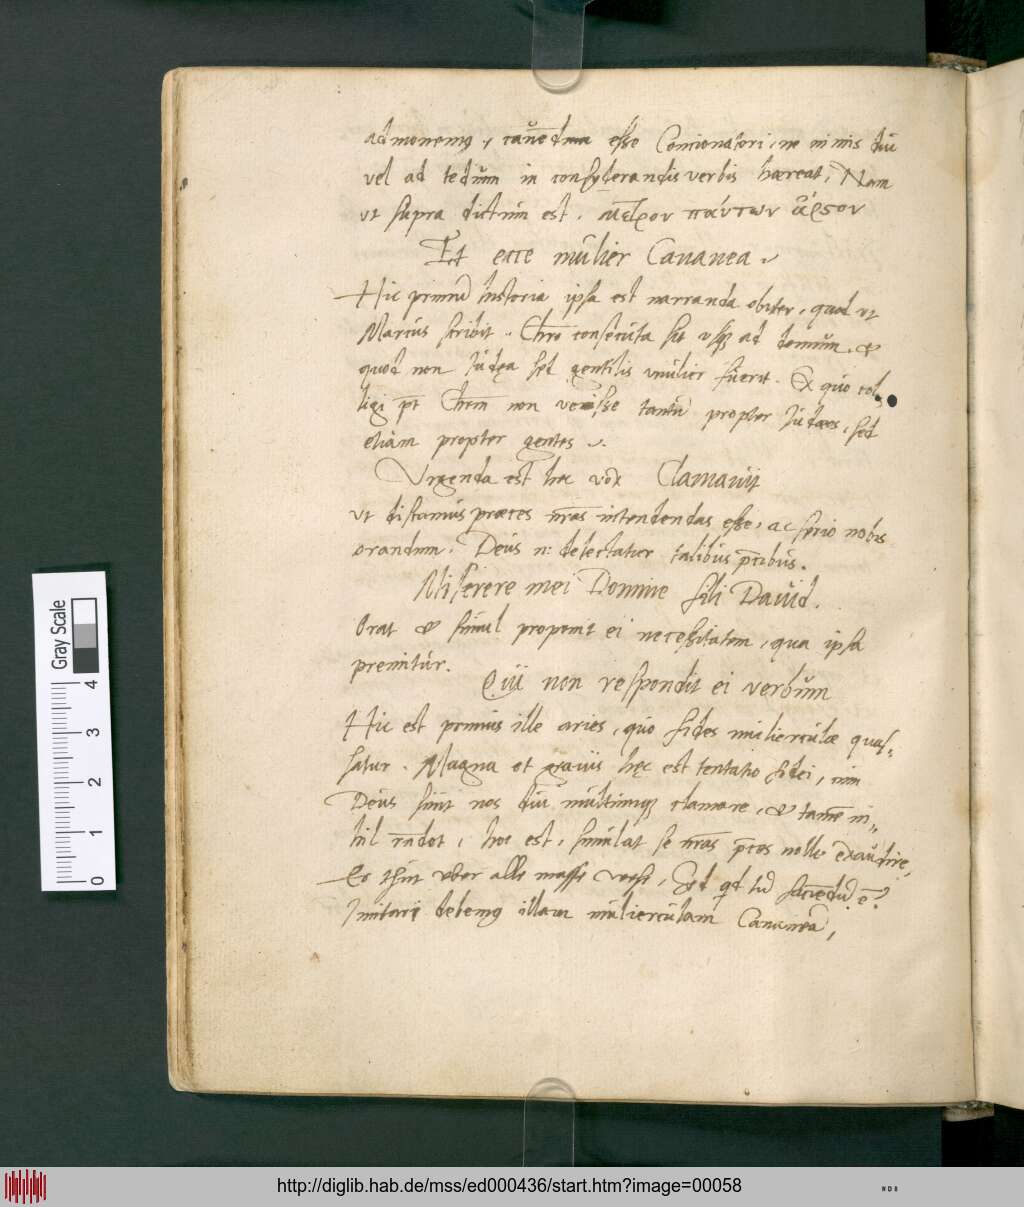 admonemus, cauendum esse Concionatori, ne nimis diu
vel ad tedium in consyderandis verbis haereat, Nam
vt supra dictum est. μέτρον πάντων ἄριστον
Et ecce mulier Cananea
Hic primum historia ipsa est narranda obiter, quod vt
Marcus scribit. Christum consecuta sit vsque ad domum. et
quod non Iudęa sed gentilis mulier fuerit. Ex quo col
ligi pt Christum non venisse tantum propter Iudaeos, sed
etiam propter gentes.
Vrgenda est haec vox Clamauit
vt discamus praeces nras intendendas esse, ac serio nobis
orandum. Deus n: delectatur talibus pcibus.
Miserere mei Domine fili Dauid.
Orat et simul proponit ei necessitatem, qua ipsa
premitur.
Qui non respondit ei verbum
Hic est primus ille aries, quo fides mulierculae quas-
satur. Magna et grauis hęc est tentatio fidei, cum
Deus sinit nos diu multumque clamare, et tamen ni-
hil rndet, hoc est, simulat se nras pces nolle exaudire,
Es thut vber alle masse wehe, Sed qd tum faciendum e?
Imitari debemus illam mulierculam Cananeam,
Gray Scale
4
3
2
1
0
http://diglib.hab.de/mss/ed000436/start.htm?image=00058